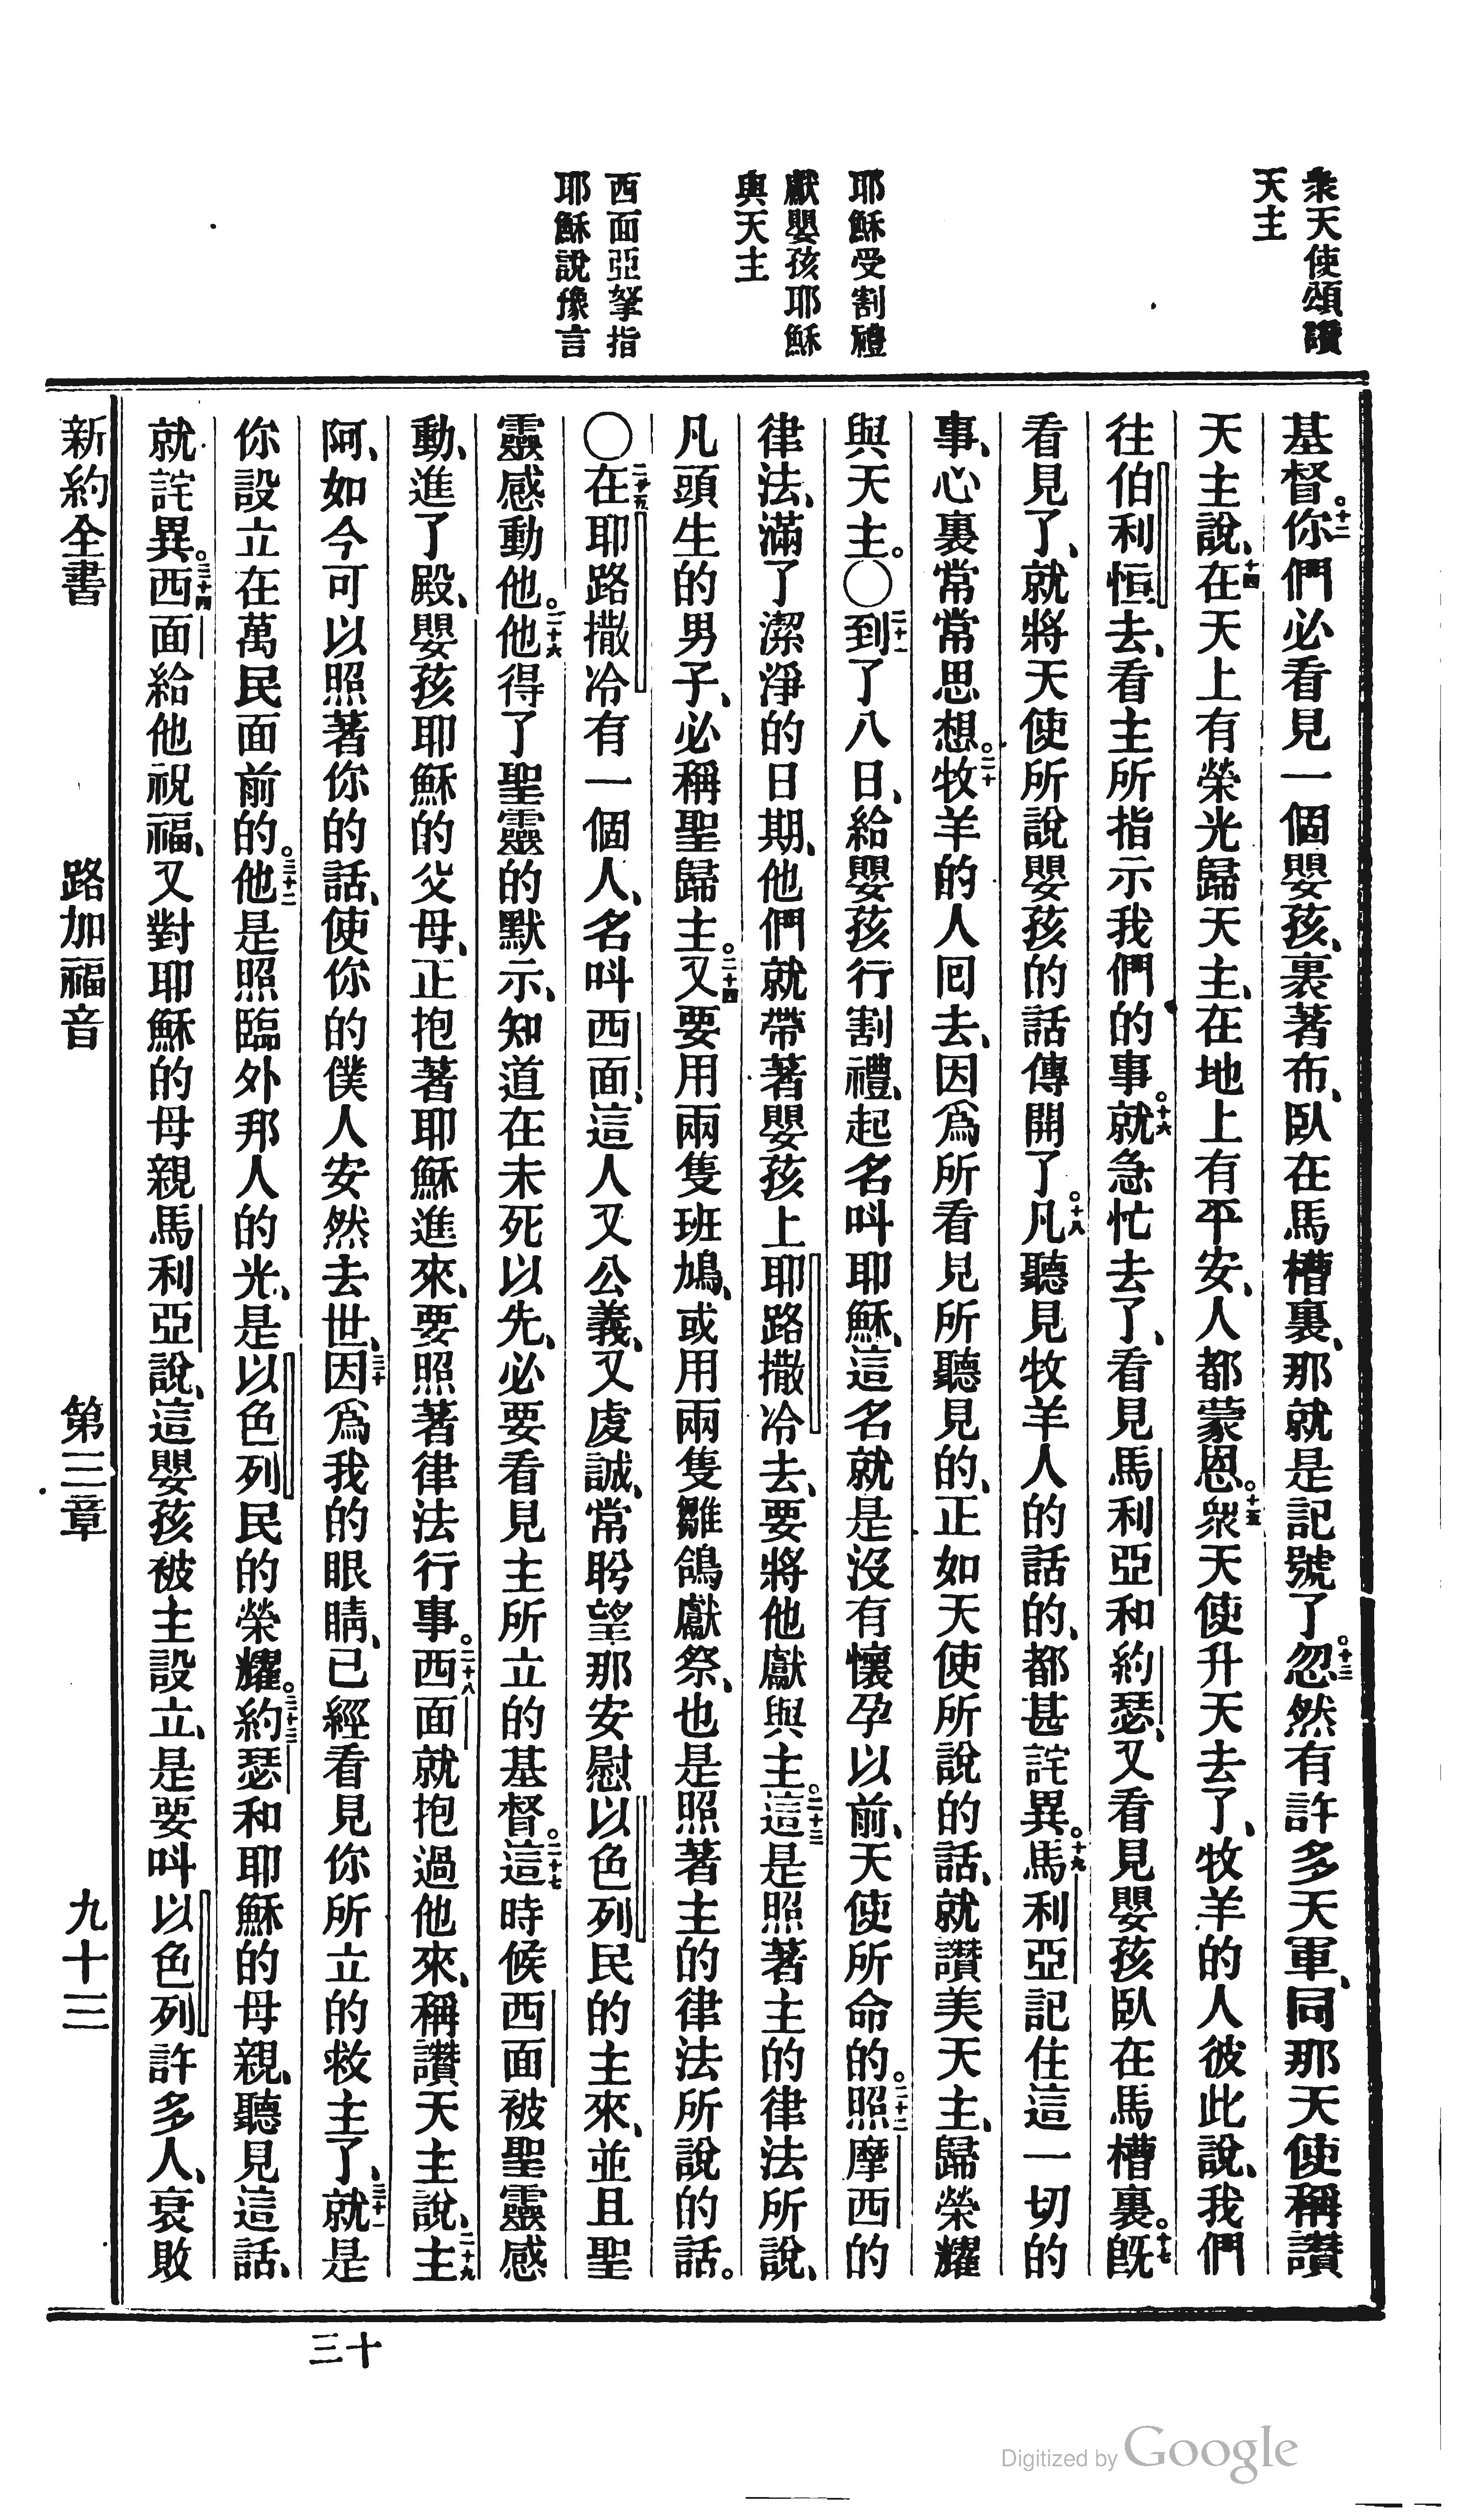 衆天使頌讚
天主
耶穌受割禮
獻嬰孩耶穌
與天主
西面亞拏指
耶穌說豫言
基督。十二你們必看見一個嬰孩、裏著布、臥在馬槽裏、那就是記號了。十三忽然有許多天軍、同那天使稱讚
天主說、十四在天上有榮光歸天主、在地上有平安、人都蒙恩。十五衆天使升天去了、牧羊的人彼此說、我們
往伯利恒去、看主所指示我們的事。十六就急忙去了、看見馬利亞和約瑟、又看見嬰孩臥在馬槽裏。十七旣
看見了、就將天使所說嬰孩的話傳開了。十八凡聽見牧羊人的話的、都甚詫異。十九馬利亞記住這一切的
事、心裏常常思想。二十牧羊的人囘去、因爲所看見所聽見的、正如天使所說的話、就讚美天主、歸榮耀
與天主。〇二十一到了八日、給嬰孩行割禮、起名呌耶穌、這名就是沒有懷孕以前、天使所命的。二十二照摩西的
律法、滿了潔淨的日期、他們就帶著嬰孩上耶路撒冷去、要將他獻與主。二十三這是照著主的律法所說、
凡頭生的男子、必稱聖歸主。二十四又要用兩隻班鳩、或用兩隻雛鴿獻祭、也是照著主的律法所說的話。
〇二十五在耶路撒冷有一個人、名呌西面、這人又公義、又虔誠、常盼望那安慰以色列民的主來、並且聖
靈感動他。二十六他得了聖靈的默示、知道在未死以先、必要看見主所立的基督。二十七這時候西面被聖靈感
動、進了殿、嬰孩耶穌的父母、正抱著耶穌進來、要照著律法行事。二十八西面就抱過他來、稱讚天主說、二十九主
阿、如今可以照著你的話、使你的僕人安然去世、三十因爲我的眼睛、已經看見你所立的救主了、三十一就是
你設立在萬民面前的。三十二他是照臨外邦人的光、是以色列民的榮耀。三十三約瑟和耶穌的母親、聽見這話、
就詫異。三十四西面給他祝福、又對耶穌的母親馬利亞說、這嬰孩被主設立、是要呌以色列許多人、衰敗
新約全書 路加福音 第三章 九十三
三十
Digitized by Google